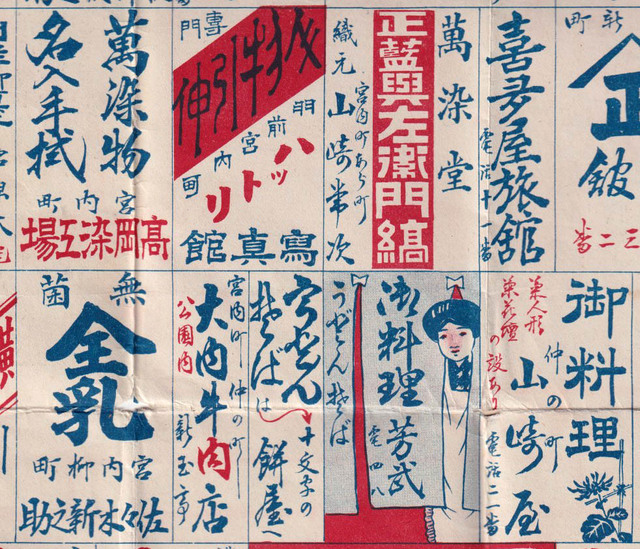 新町
正
館
三二番
喜多屋旅館
電話十一番
萬染堂
正藍與左衛門縞
織元 山崎常次
宮内町あら町
専門
引伸
門前
宮内町
ハットリ
寫真館
萬染物
名入手拭
宮内町
高岡染工場
御料理
仲の町
山崎屋
菊人形
菊花壇
の設あり
電話二一番
御料理 芳武
電四八
うどんそば
うどん
そばは
十文字の
餅屋へ
宮内町仲の町
大内牛肉店
公園内
新玉亭
無菌
全乳
宮内柳町
佐々木新之助